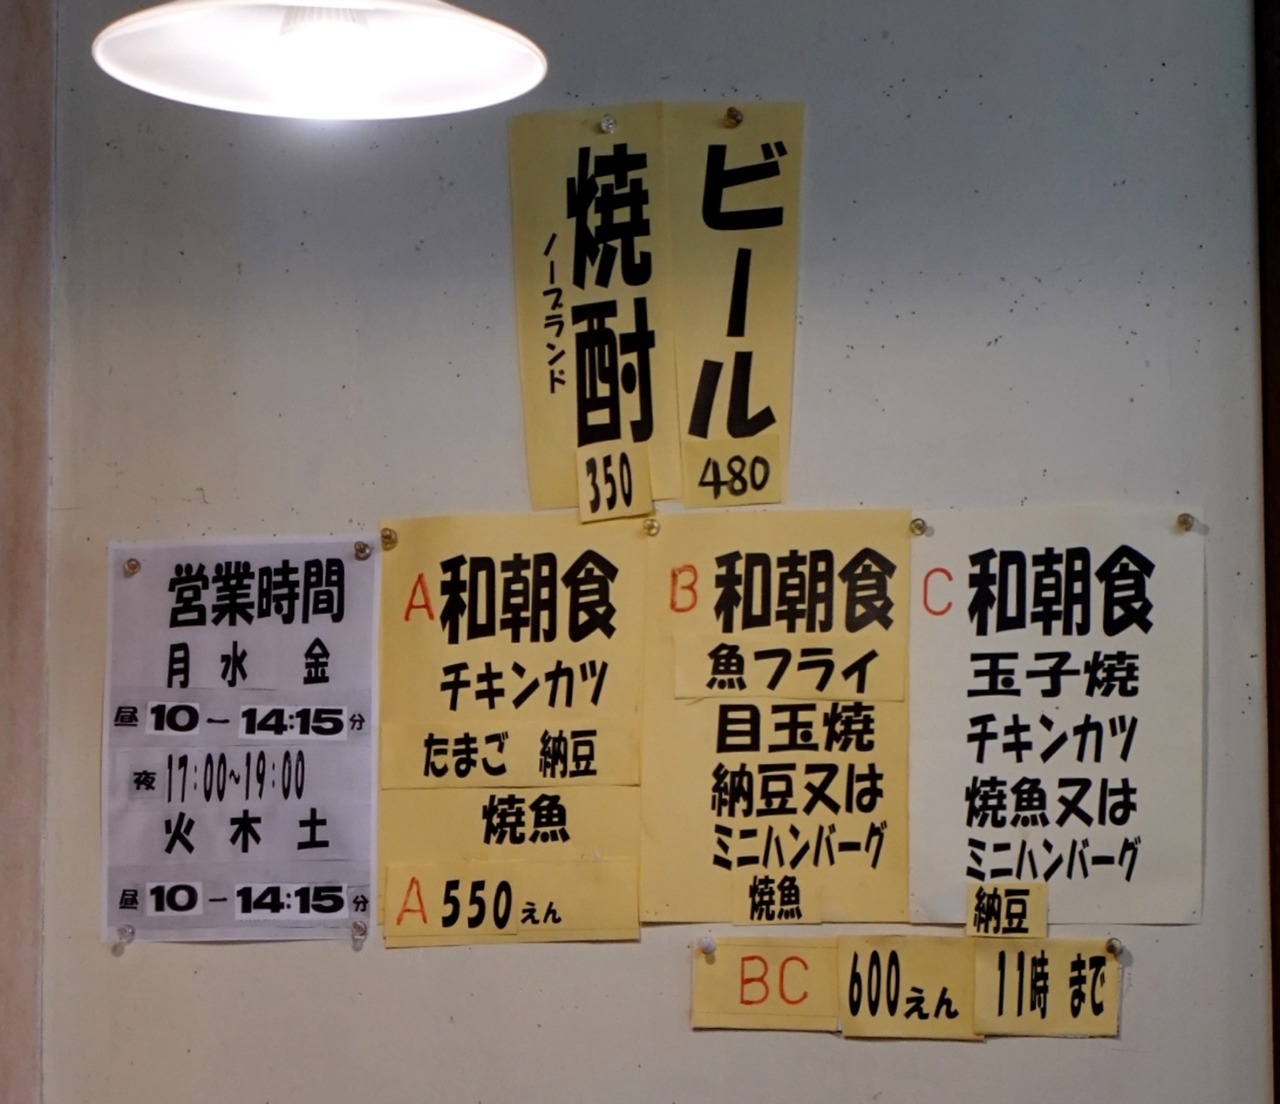 ビール
480
焼酎
ノーブランド
350
営業時間
月 水 金
昼 10-14:15分
夜 17:00~19:00
火 木 土
昼 10-14:15分
A 和朝食
チキンカツ
たまご 納豆
焼魚
A 550えん
B 和朝食
魚フライ
目玉焼
納豆又は
ミニハンバーグ
焼魚
C 和朝食
玉子焼
チキンカツ
焼魚又は
ミニハンバーグ
納豆
BC 600えん 11時 まで